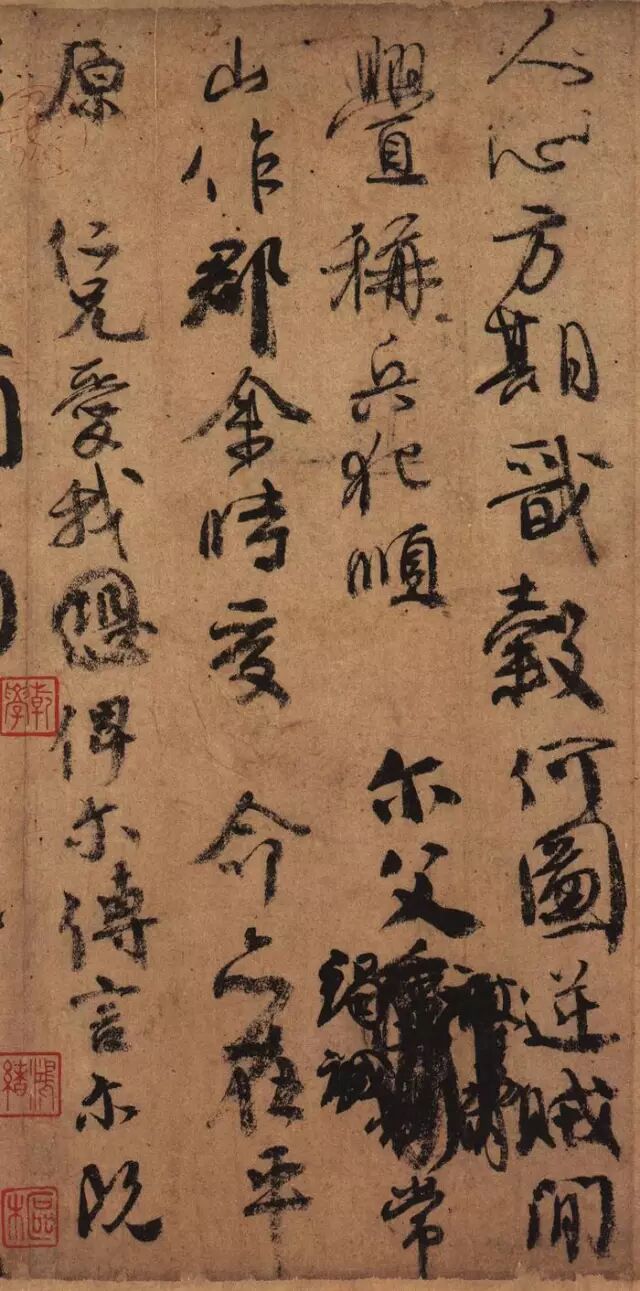 人心方期戩穀何圖逆賊閒
釁稱兵犯順尓父竭誠常
山作郡余時受命亦在平
原仁兄愛我俾尓傳言尓既
乾學
鴻緒